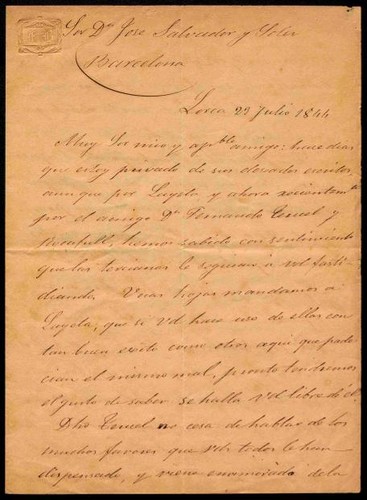 Sor Dn José Salvador y Soler
Barcelona
Lorca 29 Julio 1844
Muy Sor mio y apble amigo: hace dias
que estoy privado de sus deseados escritos,
aunque por Layeta y ahora recientemte
por el amigo Dn Fernando Teruel y
hemos sabido con sentimiento
que las le seguian a vd fasti-
diando. Unas hojas mandamos a
Layeta, que si Vd hace uso de ellas con
tan buen exito como otros aqui que pade-
cian el mismo mal, pronto tendremos
el gusto de saber se halla Vd libre de él.
Dho Teruel no cesa de hablar de los
muchos favores que Vds todos le han
dispensado, y viene enamorado de la